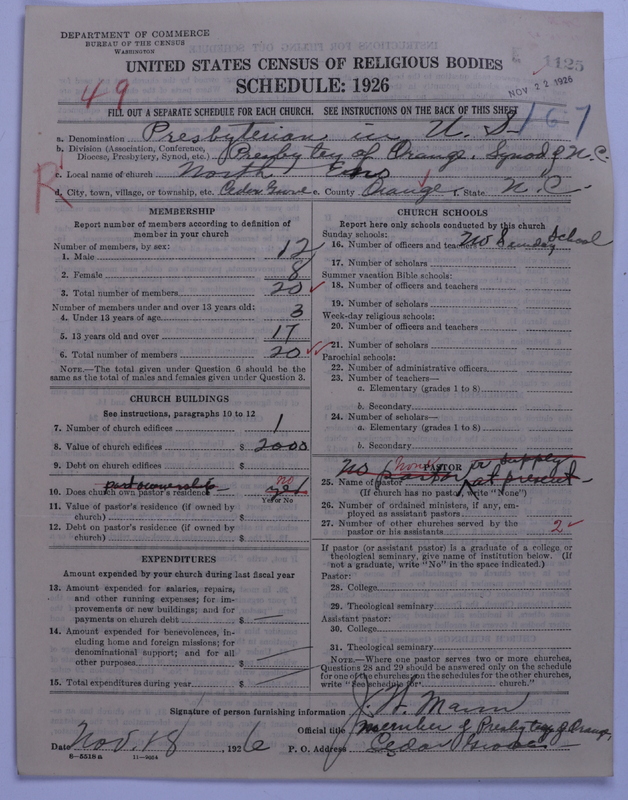 DEPARTMENT OF COMMERCE
BUREAU OF THE CENSUS
WASHINGTON
UNITED STATES CENSUS OF RELIGIOUS BODIES
1125
SCHEDULE: 1926
NOV 22 1926
49
FILL OUT A SEPARATE SCHEDULE FOR EACH CHURCH. SEE INSTRUCTIONS ON THE BACK OF THIS SHEET
167
a. Denomination Presbyterian in U. S.
b. Division (Association, Conference, Diocese, Presbytery, Synod, etc.) Presbytery of Orange, Synod of N.C.
c. Local name of church North Eno
R
d. City, town, village, or township, etc. Cedar Grove e. County Orange f. State N.C.
MEMBERSHIP
Report number of members according to definition of
member in your church
Number of members, by sex:
1. Male 12
2. Female 8
3. Total number of members 20
Number of members under and over 13 years old:
4. Under 13 years of age 3
5. 13 years old and over 17
6. Total number of members 20
NOTE.—The total given under Question 6 should be the
same as the total of males and females given under Question 3.
CHURCH BUILDINGS
See instructions, paragraphs 10 to 12
7. Number of church edifices 1
8. Value of church edifices $ 2000
9. Debt on church edifices $
part ownership
10. Does church own pastor's residence yes no
Yes or No
11. Value of pastor's residence (if owned by
church) $
12. Debt on pastor's residence (if owned by
church) $
EXPENDITURES
Amount expended by your church during last fiscal year
13. Amount expended for salaries, repairs,
and other running expenses; for im-
provements or new buildings; and for
payments on church debt $
14. Amount expended for benevolences, in-
cluding home and foreign missions; for
denominational support; and for all
other purposes $
15. Total expenditures during year $
CHURCH SCHOOLS
Report here only schools conducted by this church
Sunday schools:
16. Number of officers and teachers no Sunday School
17. Number of scholars
Summer vacation Bible schools:
18. Number of officers and teachers
19. Number of scholars
Week-day religious schools:
20. Number of officers and teachers
21. Number of scholars
Parochial schools:
22. Number of administrative officers
23. Number of teachers—
a. Elementary (grades 1 to 8)
b. Secondary
24. Number of scholars—
a. Elementary (grades 1 to 8)
b. Secondary
PASTOR
None
25. Name of pastor No pastor or supply at present
(If church has no pastor, write "None")
26. Number of ordained ministers, if any, em-
ployed as assistant pastors
27. Number of other churches served by the
pastor or his assistants 2
If pastor (or assistant pastor) is a graduate of a college or
theological seminary, give name of institution below. (If
not a graduate, write "No" in the space indicated.)
Pastor:
28. College
29. Theological seminary
Assistant pastor:
30. College
31. Theological seminary
NOTE.—Where one pastor serves two or more churches,
Questions 28 and 29 should be answered only on the schedule
for one of the churches; on the schedules for the other churches,
write "See schedule for church."
Signature of person furnishing information J. W. Mann
Official title member of Presbytery of Orange,
Date Nov. 18, 1926 P. O. Address Cedar Grove
6—5518a 11—9664